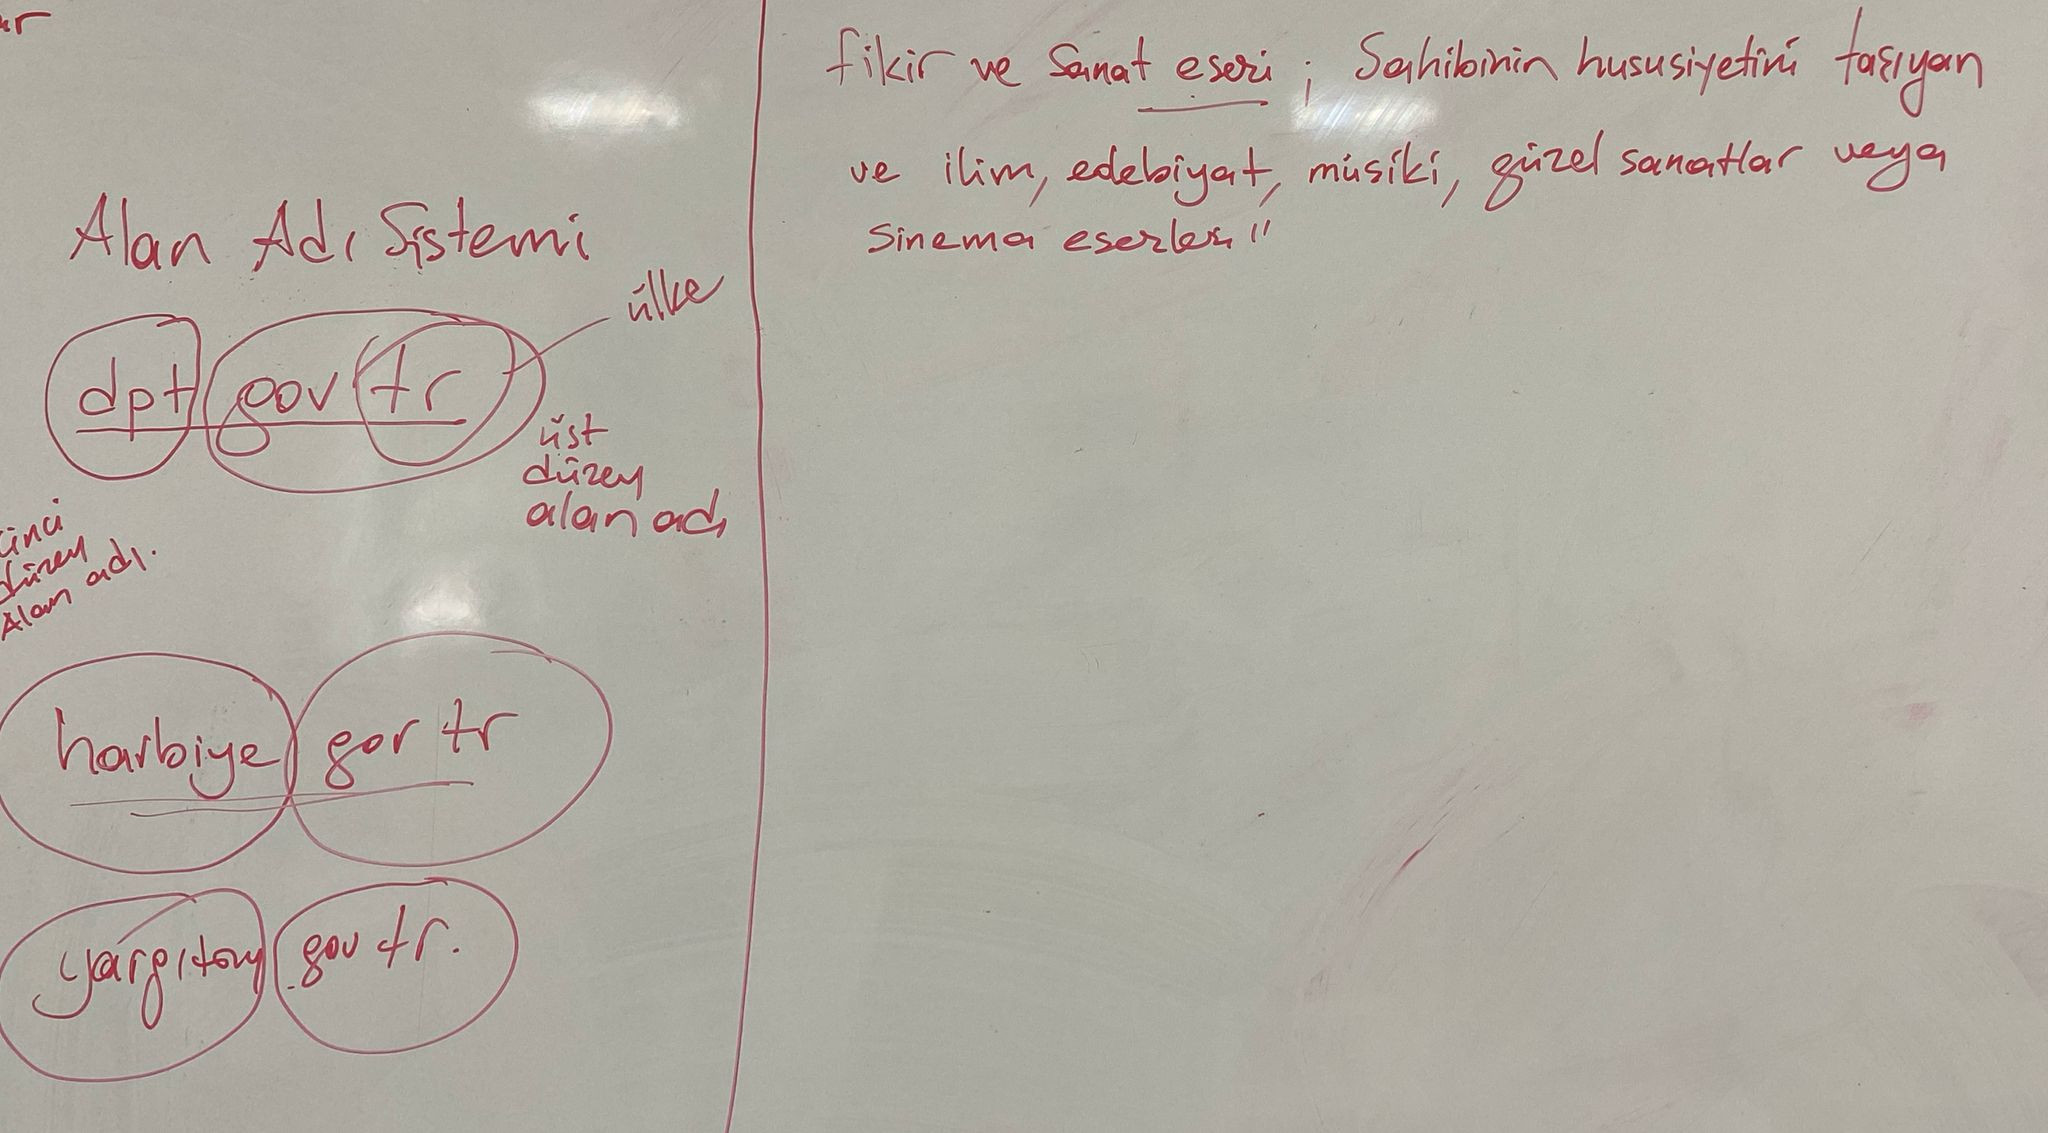 Alan Adı Sistemi
ülke
dpt gov tr
üst
düzey
alan adı
düzey
Alan adı.
harbiye gov tr
yargıtay gov tr.
fikir ve Sanat eseri ; Sahibinin hususiyetini taşıyan
ve ilim, edebiyat, musiki, güzel sanatlar veya
sinema eserleri "